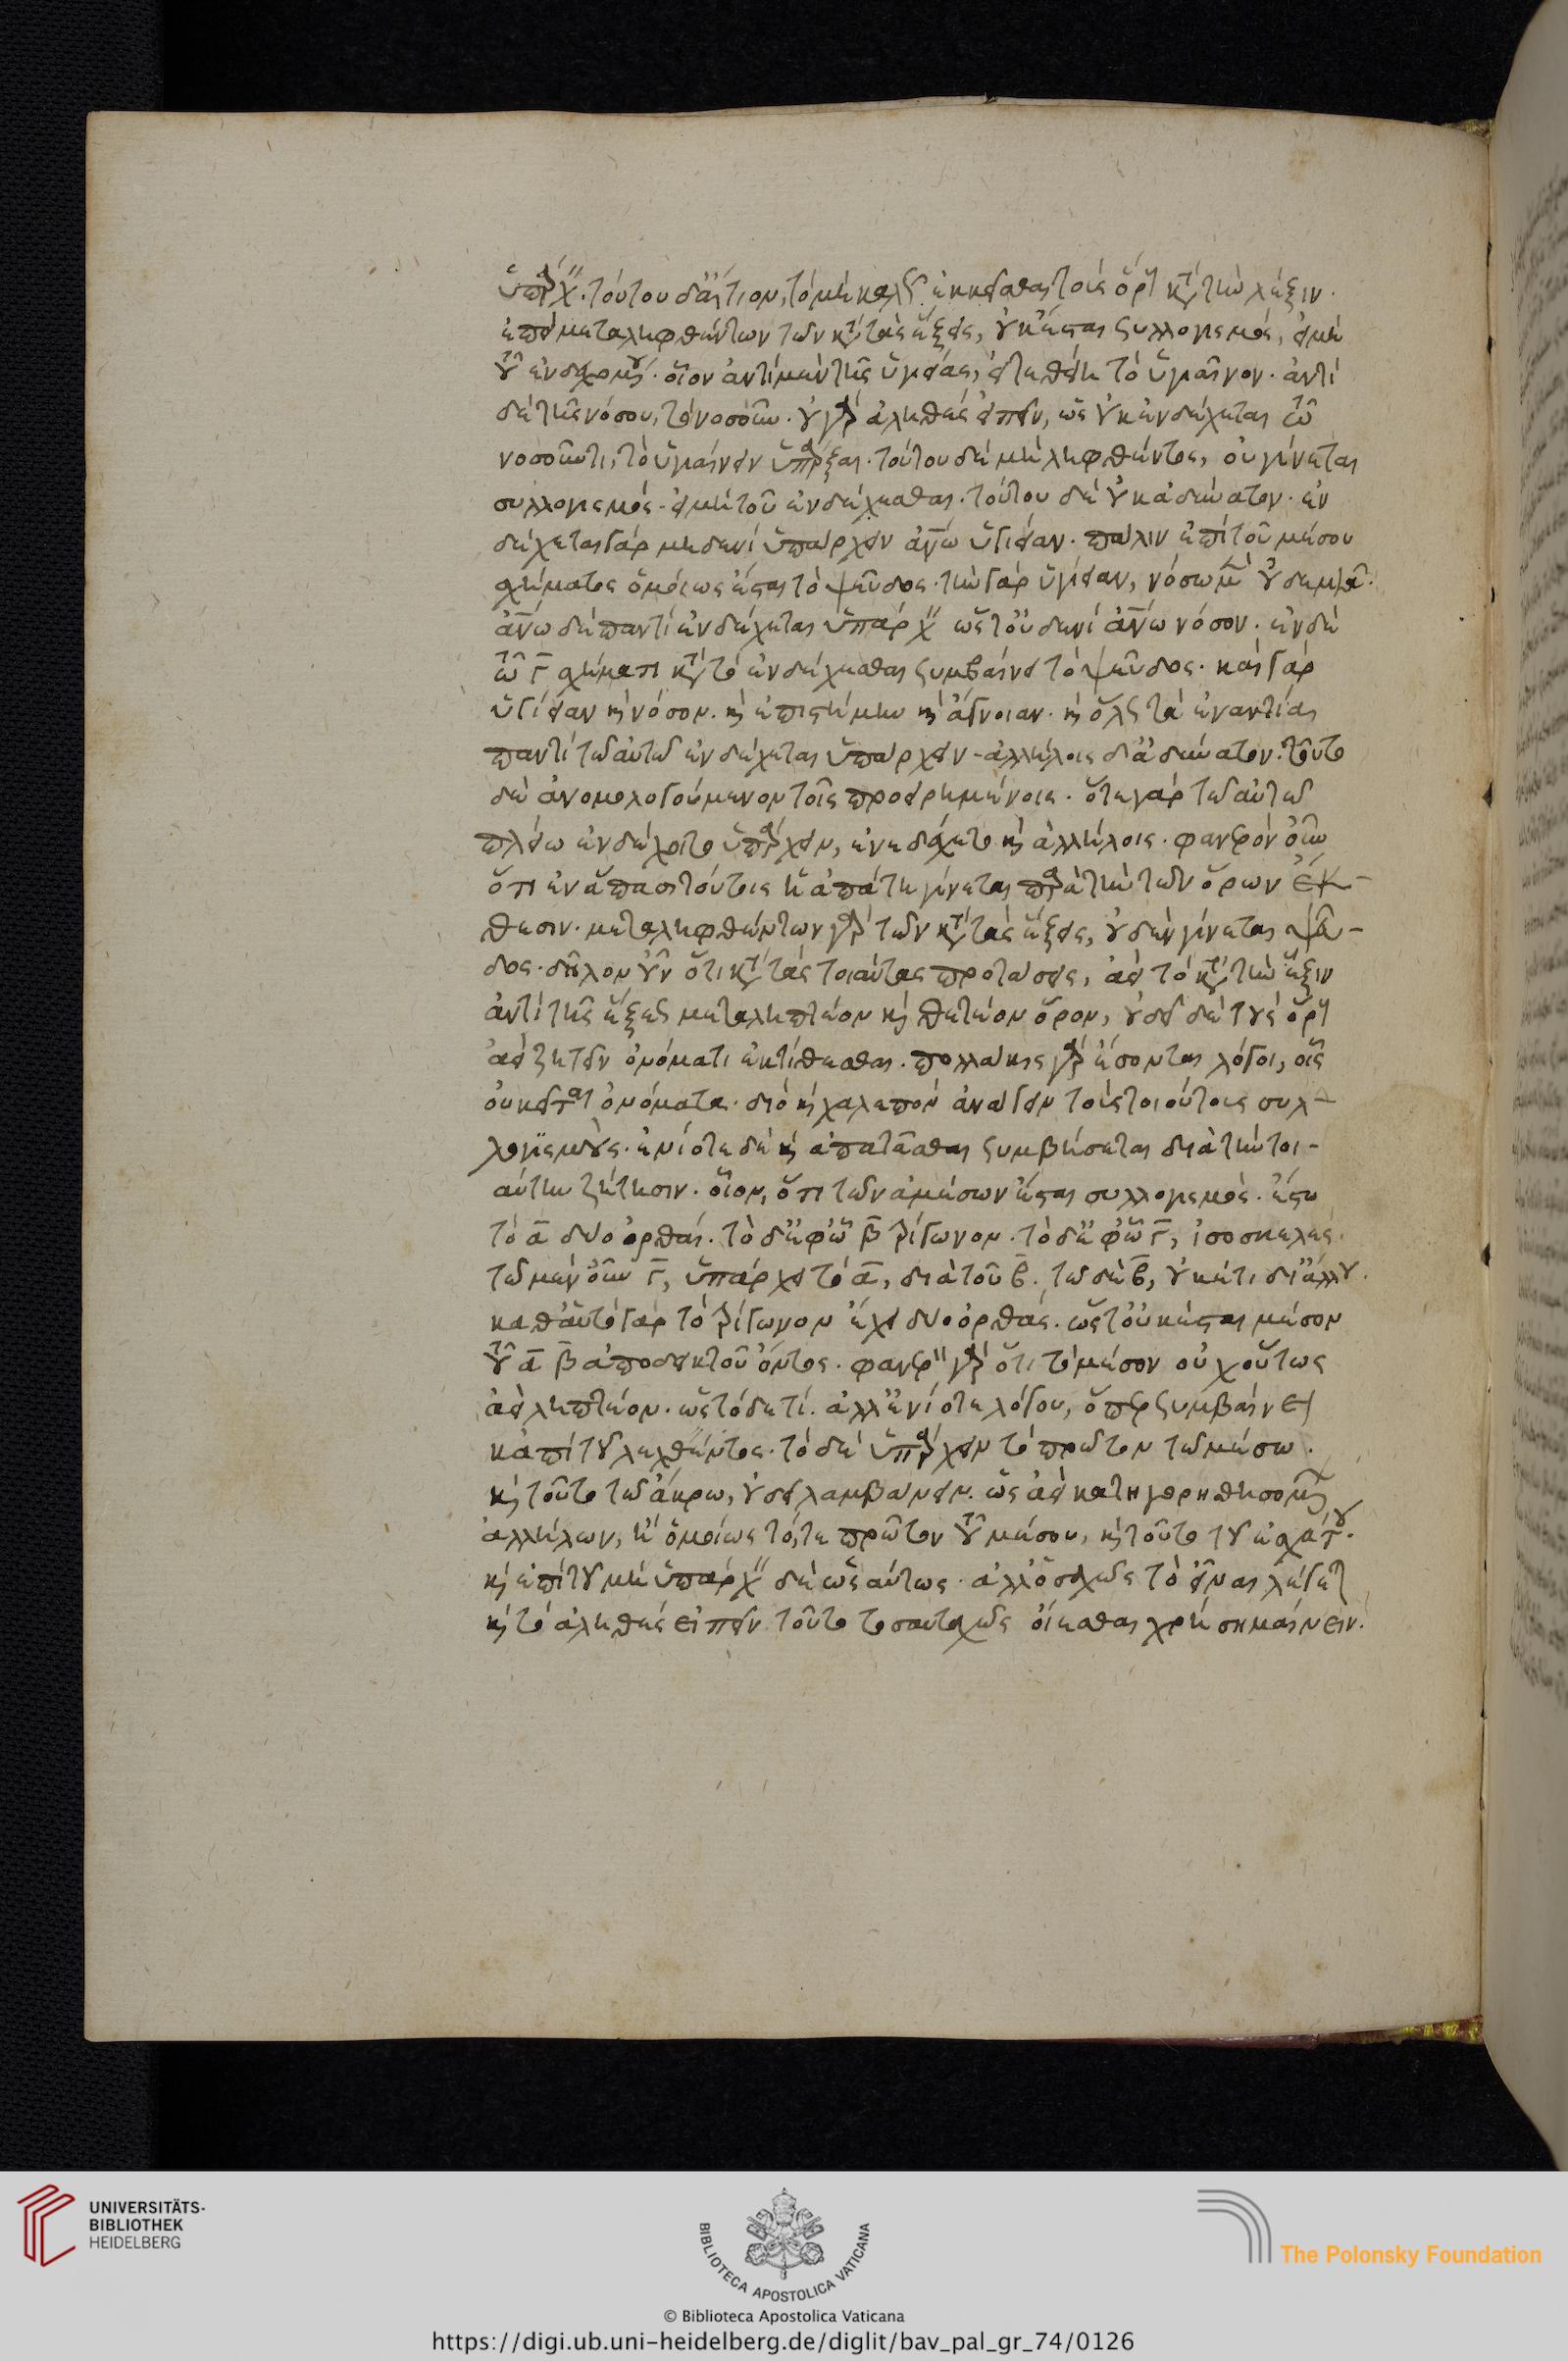 ὑπάρχειν. τούτου δ' αἴτιον, τὸ μὴ καλῶς ἐκκεῖσθαι τοὺς ὅρους κατὰ τὴν λέξιν.
ἐπεὶ μεταληφθέντων τῶν κατὰ τὰς ἕξεις, οὐκ ἔσται συλλογισμός,
οἷον ἀντὶ μὲν τῆς ὑγιείας, εἰ τεθείη τὸ ὑγιαῖνον. ἀντὶ
δὲ τῆς νόσου, τὸ νοσοῦν. οὐ γὰρ ἀληθὲς εἰπεῖν, ὡς οὐκ ἐνδέχεται τῶ
νοσοῦντι, τὸ ὑγιαίνειν ὑπάρξαι. τούτου δὲ μὴ ληφθέντος, οὐ γίνεται
συλλογισμός. εἰ μὴ τοῦ ἐνδέχεσθαι. τοῦτο δὲ οὐκ ἀδύνατον. ἐν
δέχεται γὰρ μηδενὶ ὑπάρχειν ἀνω ὑγίειαν. πάλιν ἐπὶ τοῦ μέσου
σχήματος ὁμοίως ἔσται τὸ ψεῦδος. τὴν γὰρ ὑγίειαν, νόσω μὲν οὐδεμιᾶ.
ἀνω δὲ παντὶ ἐνδέχεται ὑπάρχειν ὥστ' οὐδενὶ ἀνω νόσον. ἐν δὲ
τῶ γ σχήματι κατὰ τὸ ἐνδέχεσθαι συμβαίνει τὸ ψεῦδος. καὶ γὰρ
ὑγίειαν καὶ νόσον. καὶ ἐπιστήμην καὶ ἄγνοιαν. καὶ ὅλως τὰ ἐναντία
παντὶ τῶ αὐτῶ ἐνδέχεται ὑπάρχειν. ἀλλήλοις δ' ἀδύνατον. τοῦτο
δὲ ἀνομολογούμενον τοῖς προειρημένοις. ὅτε γὰρ τῶ αὐτῶ
πλείω ἐνδέχοιτο ὑπάρχειν, ἐνεδέχετο καὶ ἀλλήλοις. φανερὸν οὖν
ὅτι ἐν ἅπασι τούτοις ἡ ἀπάτη γίνεται παρὰ τὴν τῶν ὅρων ἔκ-
θεσιν. μεταληφθέντων γὰρ τῶν κατὰ τὰς ἕξεις, οὐδὲν γίνεται ψεῦ-
δος. δῆλον οὖν ὅτι κατὰ τὰς τοιαύτας προτάσεις, ἀεὶ τὸ κατὰ τὴν ἕξιν
ἀντὶ τῆς ἕξεως μεταληπτέον καὶ θετέον ὅρον, οὐ δεῖ δὲ τοὺς ὅρους
ἀεὶ ζητεῖν ὀνόματι ἐκτίθεσθαι. πολλάκις γὰρ ἔσονται λόγοι, οἷς
οὐ κεῖται ὀνόματα. διὸ καὶ χαλεπὸν ἀνάγειν τοὺς τοιούτους συλ-
λογισμούς. ἐνίοτε δὲ καὶ ἀπατᾶσθαι συμβήσεται διὰ τὴν τοι-
αύτην ζήτησιν. οἷον, ὅτι τῶν ἀμέσων ἔσται συλλογισμός. ἔστω
τὸ α δυο ὀρθαί. τὸ δ' ἐφ' ὧ β τρίγωνον. τὸ δ' ἐφ' ὧ γ, ἰσοσκελές.
τῶ μὲν οὖν γ, ὑπάρχει τὸ α, διὰ τοῦ β. τῶ δὲ β, οὐκέτι δι' ἄλλου.
καθ' αὑτὸ γὰρ τὸ τρίγωνον ἔχει δυο ὀρθάς. ὥστ' οὐκ ἔσται μέσον
τοῦ α β ἀποδεικτοῦ ὄντος. φανερὸν γὰρ ὅτι τὸ μέσον οὐχ οὕτως
ἀεὶ ληπτέον. ὡς τόδε τί. ἀλλ' ἐνίοτε λόγον, ὅπερ συμβαίνει
κἀπὶ τοῦ λεχθέντος. τὸ δὲ ὑπάρχειν τὸ πρῶτον τῶ μέσω.
καὶ τοῦτο τῶ ἄκρω, οὐ δεῖ λαμβάνειν. ὡς ἀεὶ κατηγορηθησομένων
ἀλλήλων, ἢ ὁμοίως τό, τε πρῶτον τοῦ μέσου, καὶ τοῦτο τοῦ ἐσχάτου.
καὶ ἐπὶ τοῦ μὴ ὑπάρχειν δὲ ὡσαύτως. ἀλλ' ὁσαχῶς τὸ εἶναι λέγεται
καὶ τὸ ἀληθὲς εἰπεῖν τοῦτο τοσαυταχῶς οἴεσθαι χρὴ σημαίνειν.
UNIVERSITÄTS-
BIBLIOTHEK
HEIDELBERG
BIBLIOTECA APOSTOLICA VATICANA
The Polonsky Foundation
© Biblioteca Apostolica Vaticana
https://digi.ub.uni-heidelberg.de/diglit/bav_pal_gr_74/0126